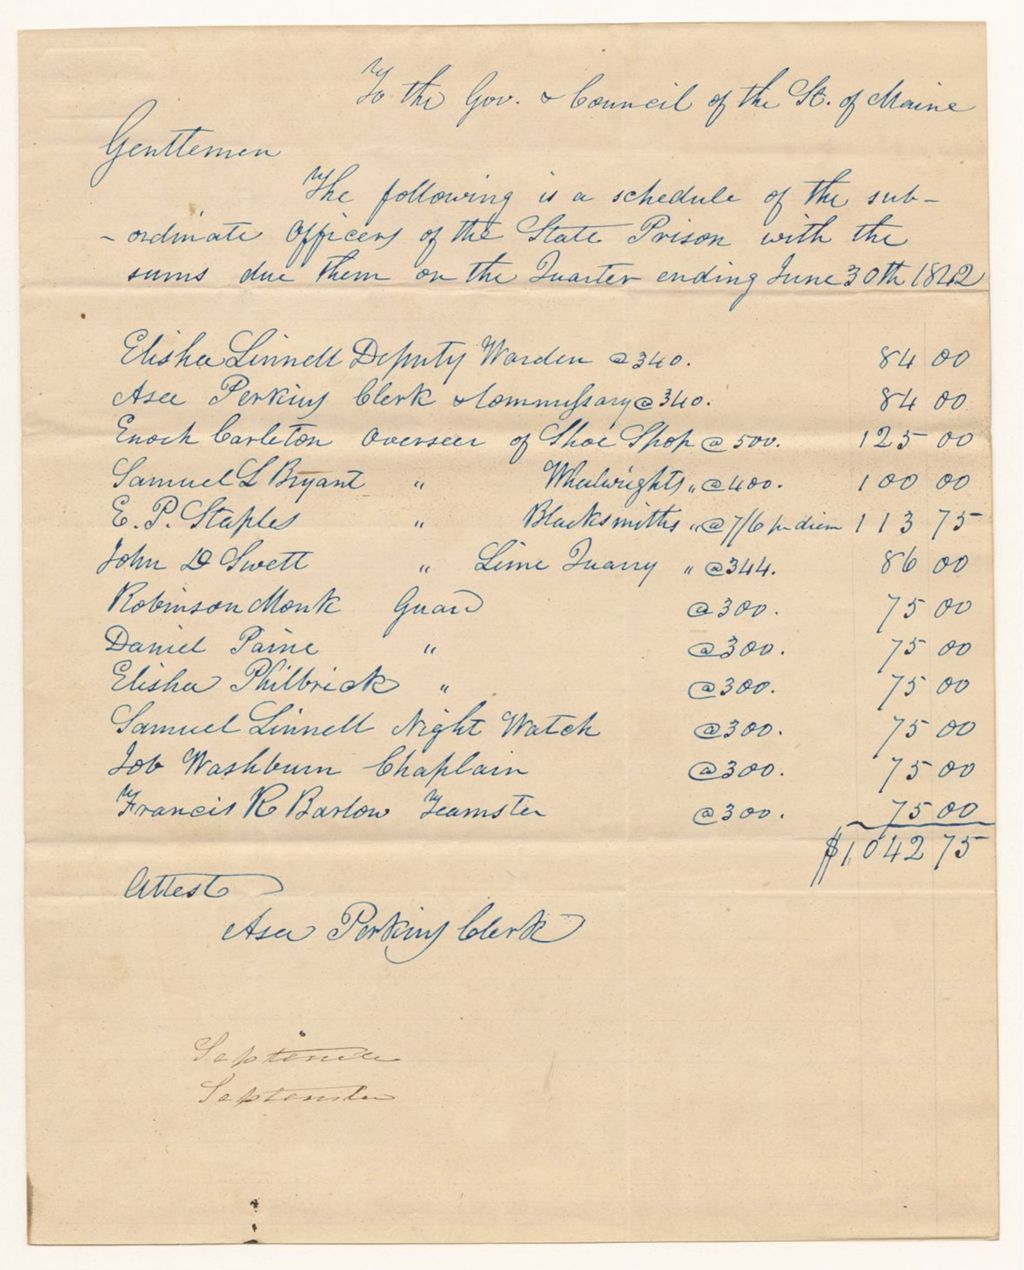 To the Gov. & Council of the St. of Maine
Gentlemen
The following is a schedule of the sub-
-ordinate Officers of the State Prison with the
sums due them on the Quarter ending June 30th 1842
Elisha Linnell Deputy Warden @ 340. 84 00
Asa Perkins Clerk & Commissary @ 340. 84 00
Enoch Carleton Overseer of Shoe Shop @ 500. 125 00
Samuel L Bryant " Wheelwrights " @ 400. 100 00
E. P. Staples " Blacksmiths " @ 7/6 pr diem 113 75
John D Swett " Lime Quarry " @ 344. 86 00
Robinson Monk Guard @ 300. 75 00
Daniel Paine " @ 300. 75 00
Elisha Philbrick " @ 300. 75 00
Samuel Linnell Night Watch @ 300. 75 00
Job Washburn Chaplain @ 300. 75 00
Francis R Barlow Teamster @ 300. 75 00
$1,042 75
Attest
Asa Perkins Clerk
September
September